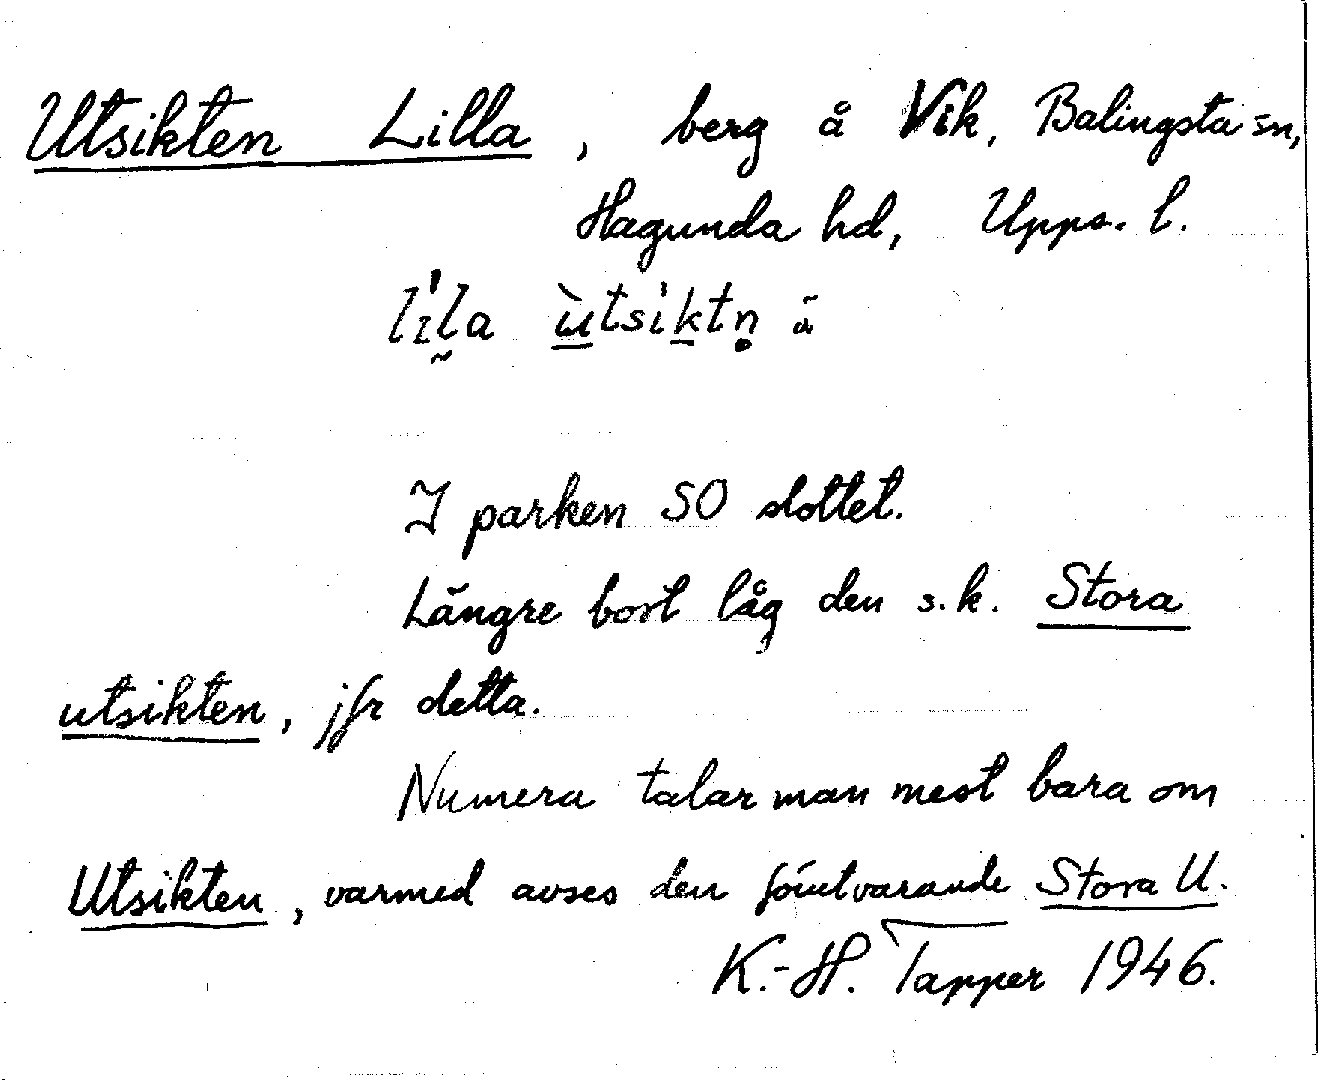 Utsikten Lilla, berg å Vik, Balingsta sn,
Hagunda hd, Upps. l.
lɪ̀l̰a ùtsìktn̥ ã
I parken SO slottet.
Längre bort låg den s.k. Stora
utsikten, jfr detta.
Numera talar man mest bara om
Utsikten, varmed avses den förutvarande Stora U.
K.-H. Tapper 1946.